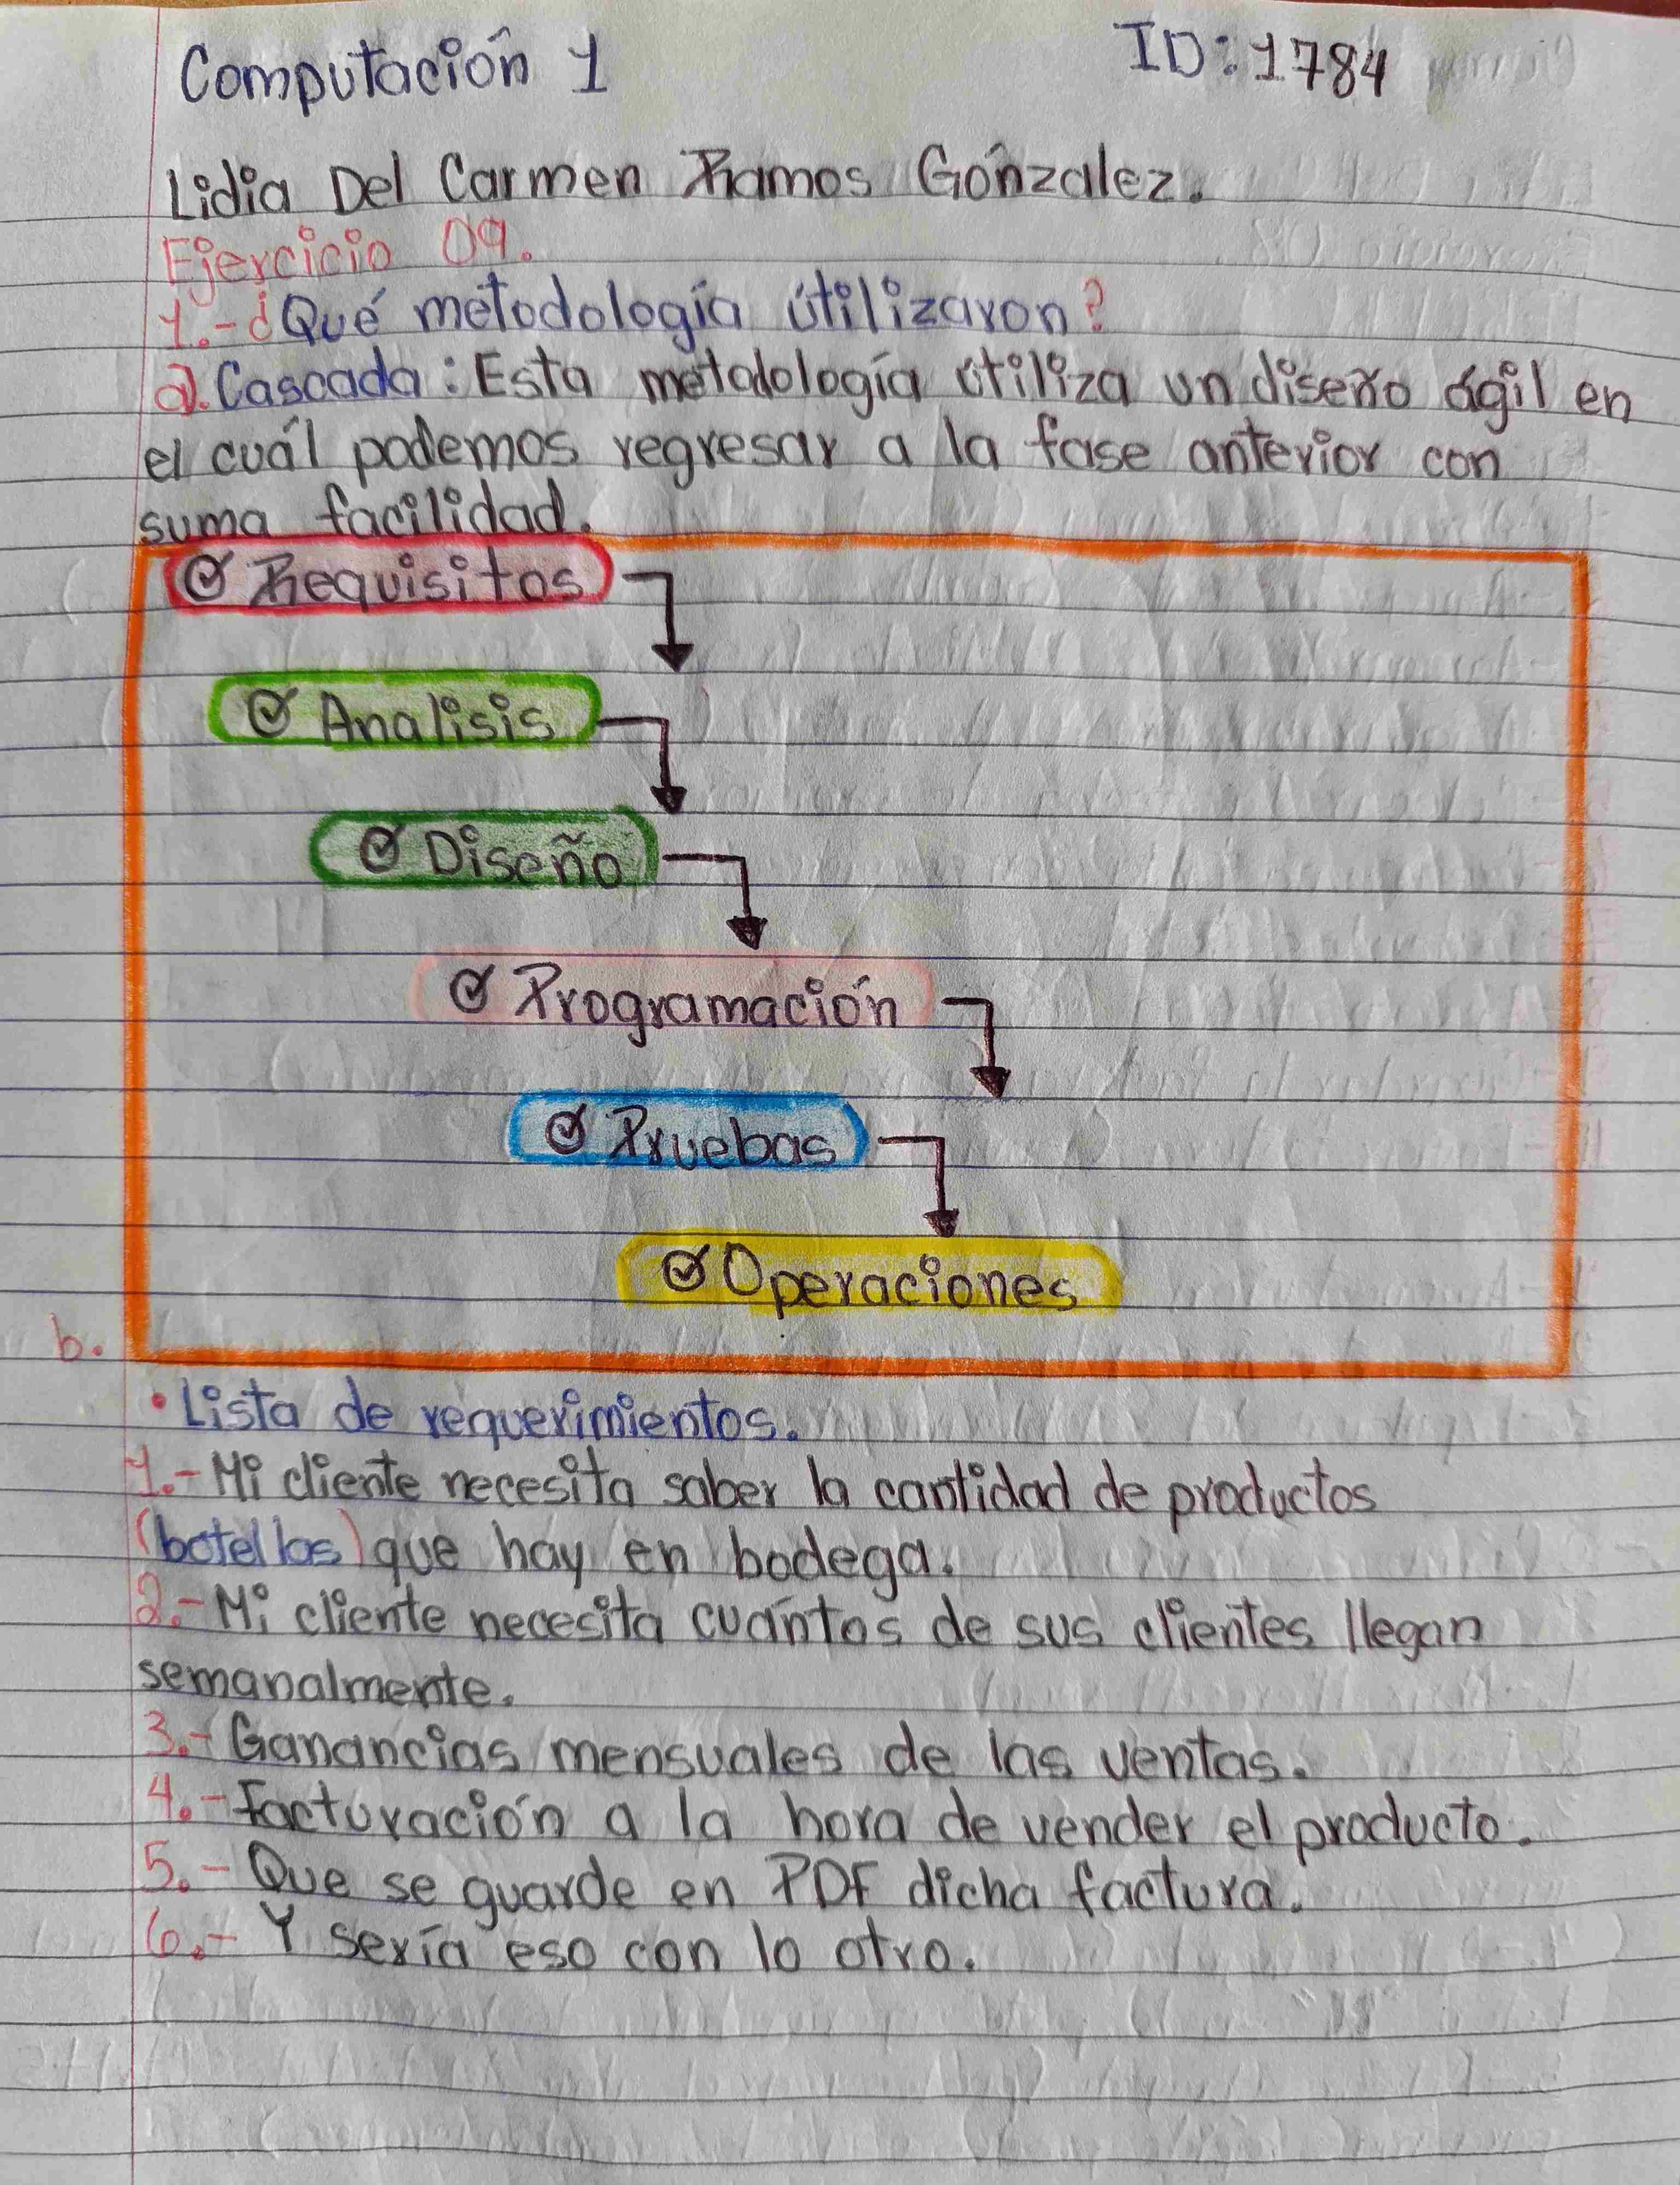 Computación 1
ID: 1784
Lidia Del Carmen Ramos Gónzalez.
Ejercicio 09.
1.- ¿Qué metodología útilizaron?
a). Cascada: Esta metodología útiliza un diseño ágil en
el cuál podemos regresar a la fase anterior con
suma facilidad.
Requisitos
Analisis
Diseño
Programación
Pruebas
Operaciones
b.
• Lista de requerimientos.
1.- Mi cliente necesita saber la cantidad de productos
(botellas) que hay en bodega.
2.- Mi cliente necesita cuántos de sus clientes llegan
semanalmente.
3.- Ganancias mensuales de las ventas.
4.- Facturación a la hora de vender el producto.
5.- Que se guarde en PDF dicha factura.
6.- Y sería eso con lo otro.